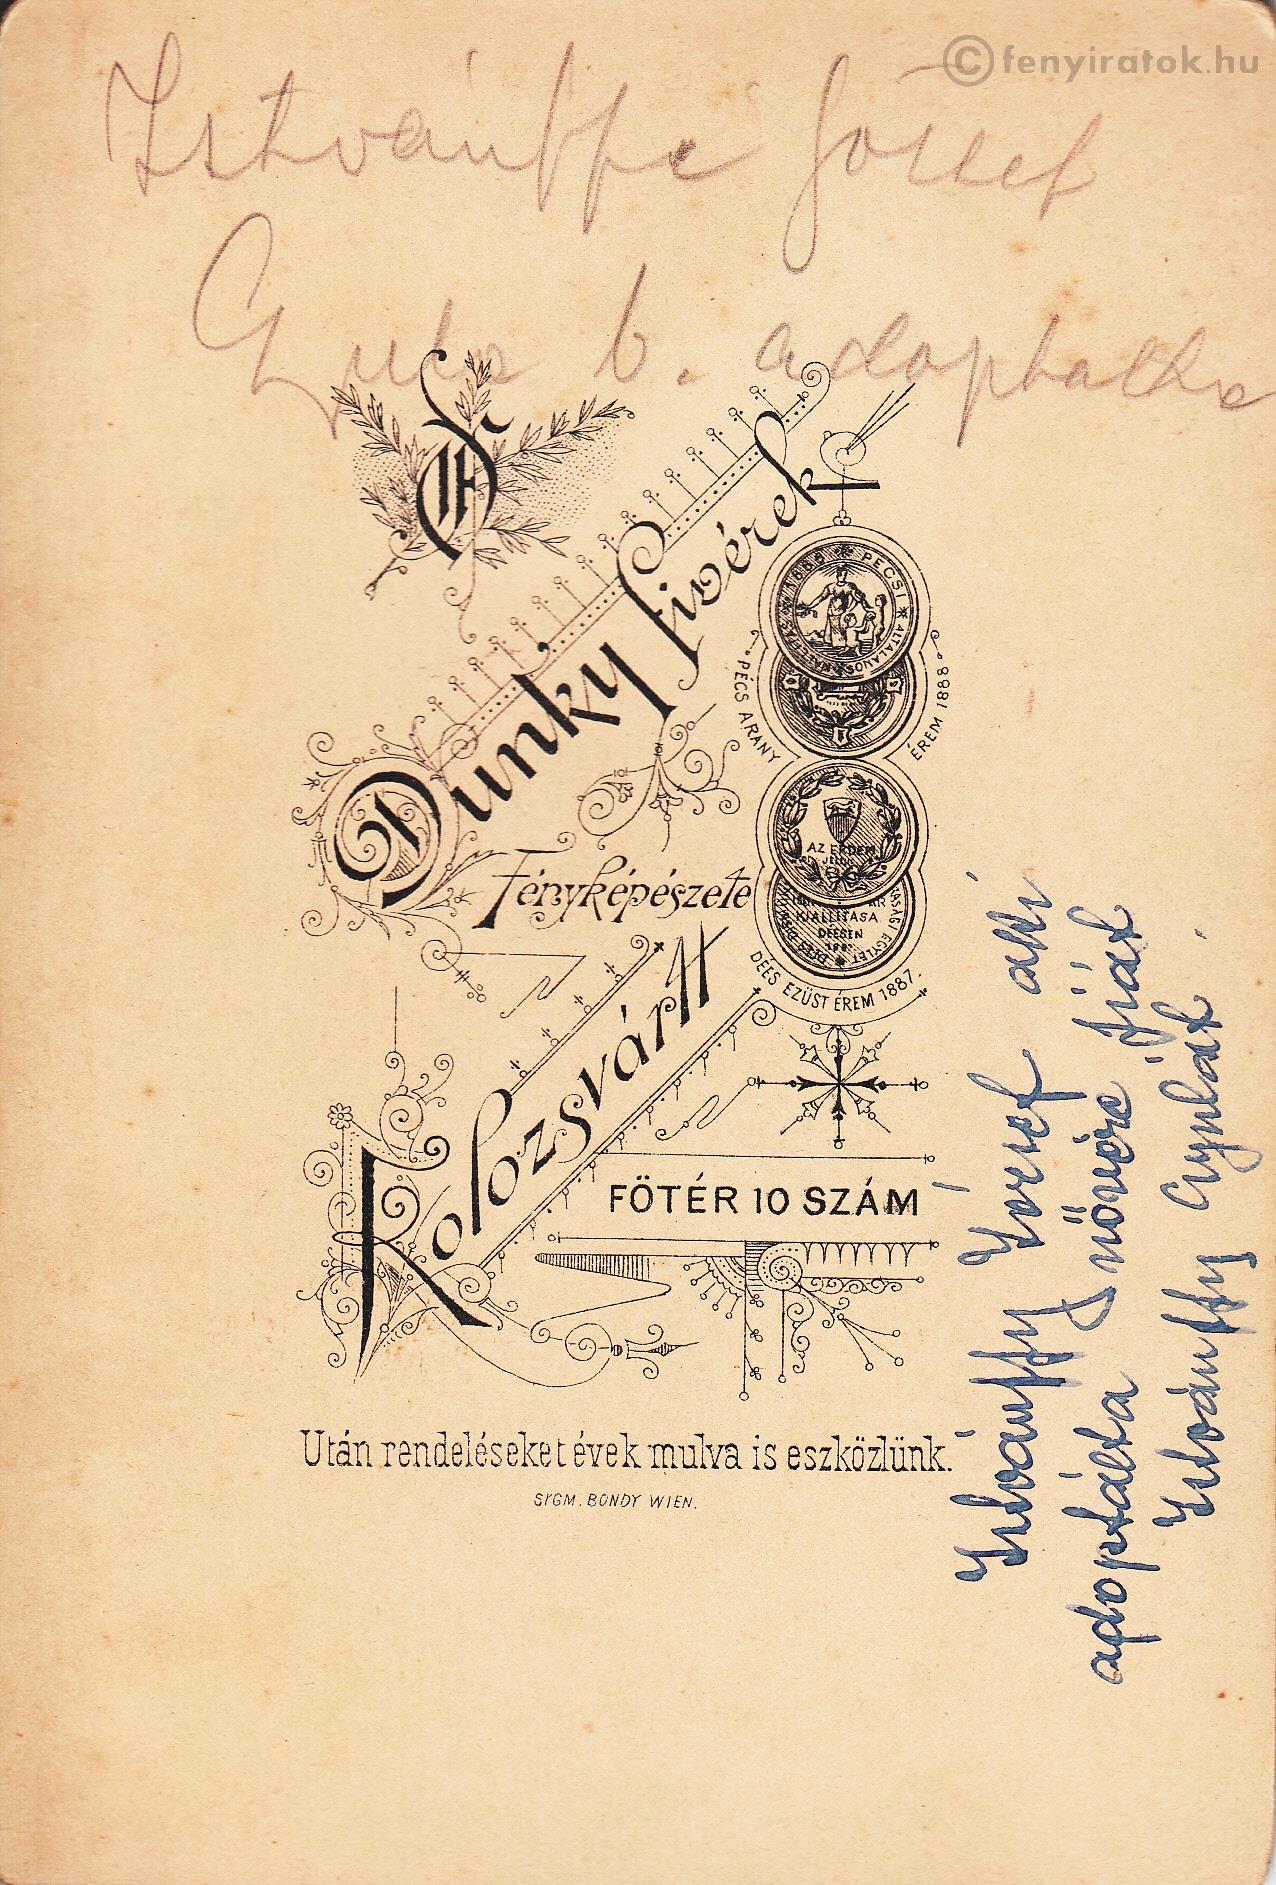 ©fenyiratok.hu
Istvánffi József
Gyula b. adoptálta
Dunky fivérek
1888 PÉCSI ÁLTALÁNOS
PÉCS ARANY ÉREM 1888
AZ ÉRDEM
JELÉÜL
KIALLITÁSA
DÉESEN
DÉÉS EZÜST ÉREM 1887.
Fényképészete
Kolozsvártt
FŐTÉR 10 SZÁM
Után rendeléseket évek mulva is eszközlünk.
SIGM. BONDY WIEN.
Istvánffy József aki
adoptálta nővére fiát
Istvánffy Gyulát.